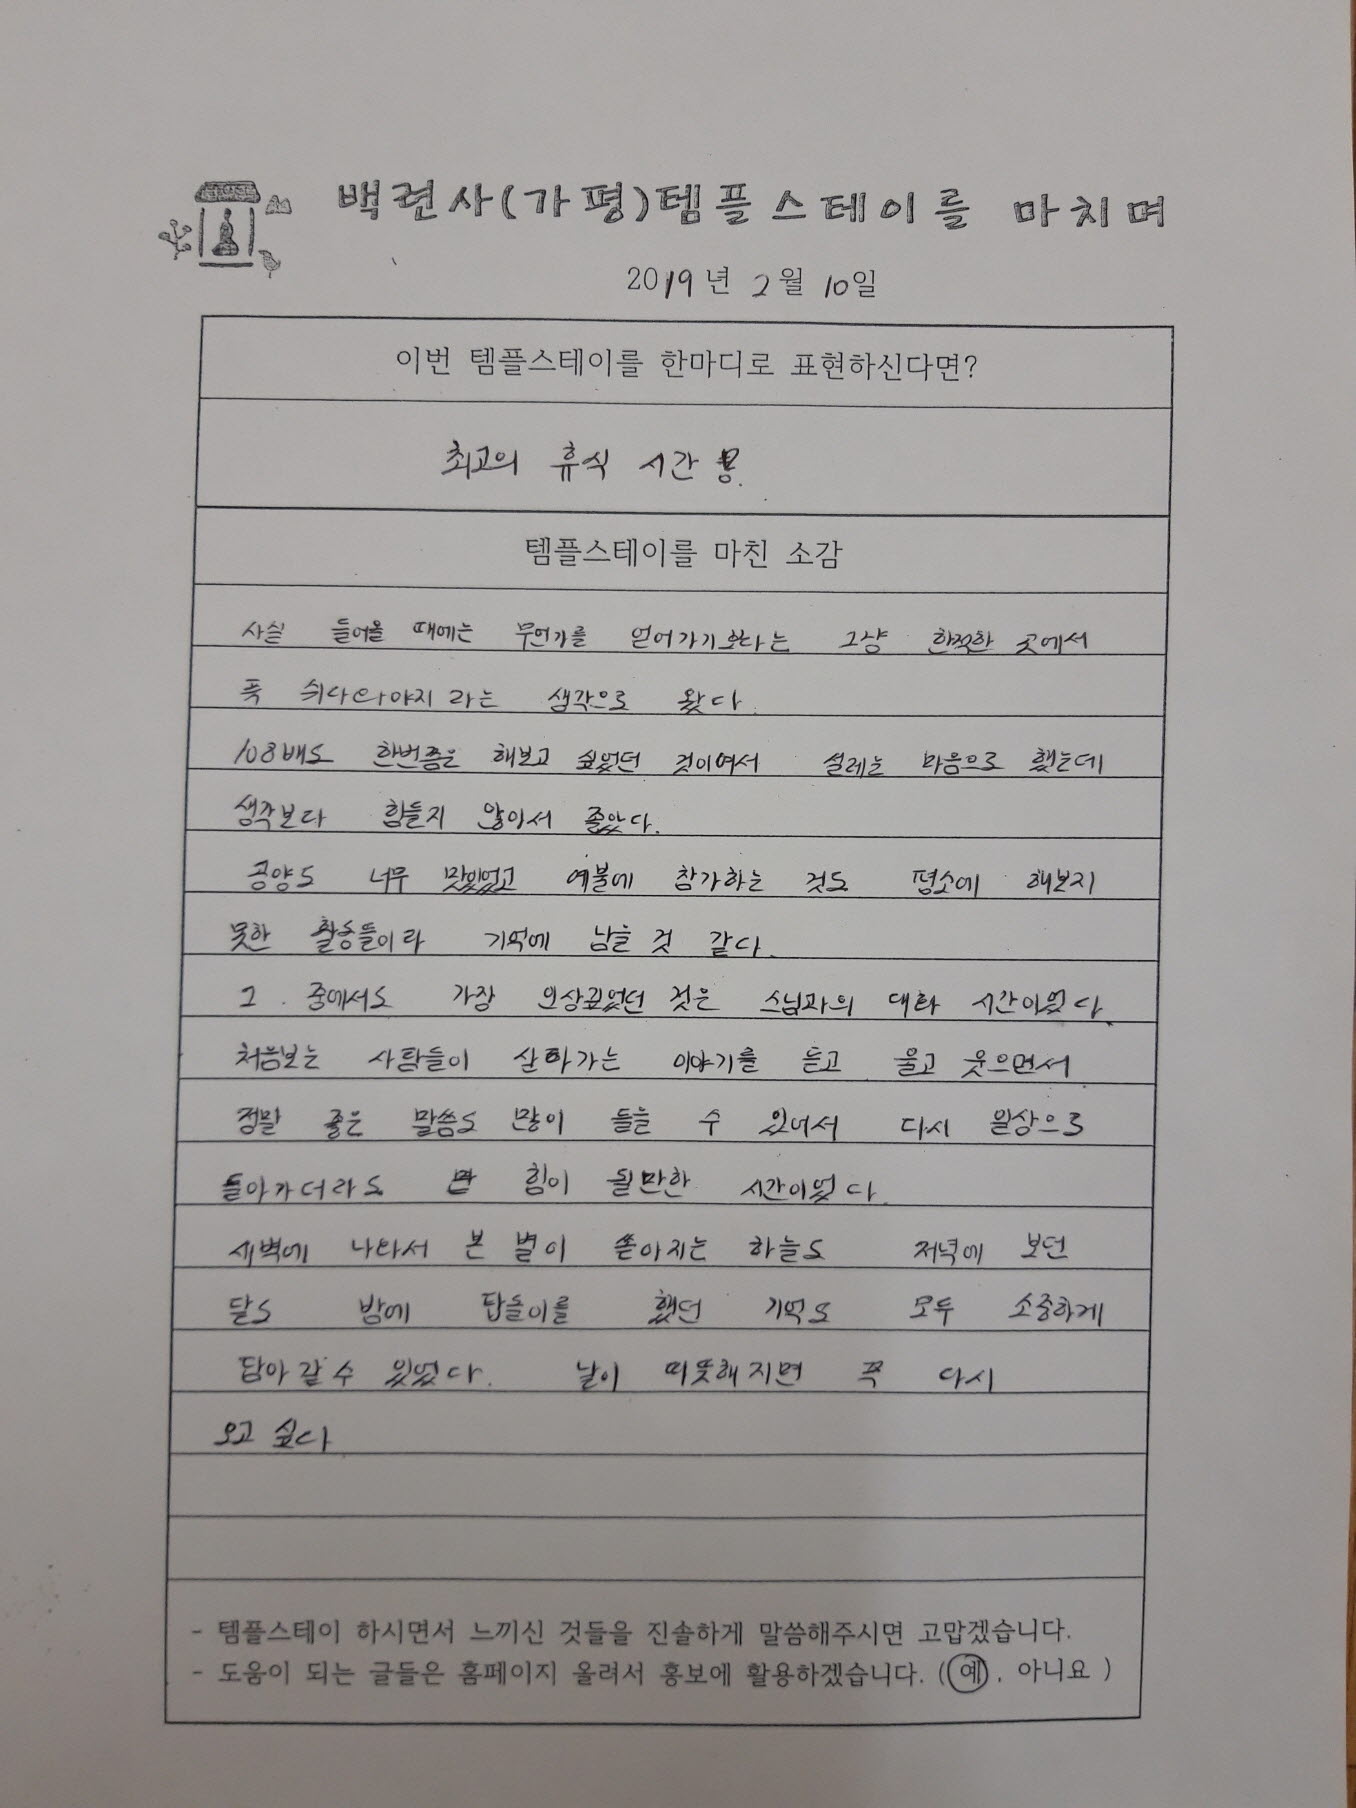 백련사(가평)템플스테이를 마치며
2019년 2월 10일
이번 템플스테이를 한마디로 표현하신다면?
최고의 휴식 시간
템플스테이를 마친 소감
사실 들어올 때에는 무언가를 얻어가기보다는 그냥 한적한 곳에서
푹 쉬다와야지라는 생각으로 왔다.
108배도 한번쯤은 해보고 싶었던 것이여서 설레는 마음으로 했는데
생각보다 힘들지 않아서 좋았다.
공양도 너무 맛있었고 예불에 참가하는 것도 평소에 해보지
못한 활동들이라 기억에 남을 것 같다.
그 중에서도 가장 인상깊었던 것은 스님과의 대화 시간이었다.
처음보는 사람들이 살아가는 이야기를 듣고 울고 웃으면서
정말 좋은 말씀도 많이 들을 수 있어서 다시 일상으로
돌아가더라도 힘이 될만한 시간이었다.
새벽에 나와서 본 별이 쏟아지는 하늘도 저녁에 보던
달도 밤에 탑돌이를 했던 기억도 모두 소중하게
담아갈 수 있었다. 날이 따뜻해지면 꼭 다시
오고 싶다
- 템플스테이 하시면서 느끼신 것들을 진솔하게 말씀해주시면 고맙겠습니다.
- 도움이 되는 글들은 홈페이지 올려서 홍보에 활용하겠습니다. (예, 아니요 )